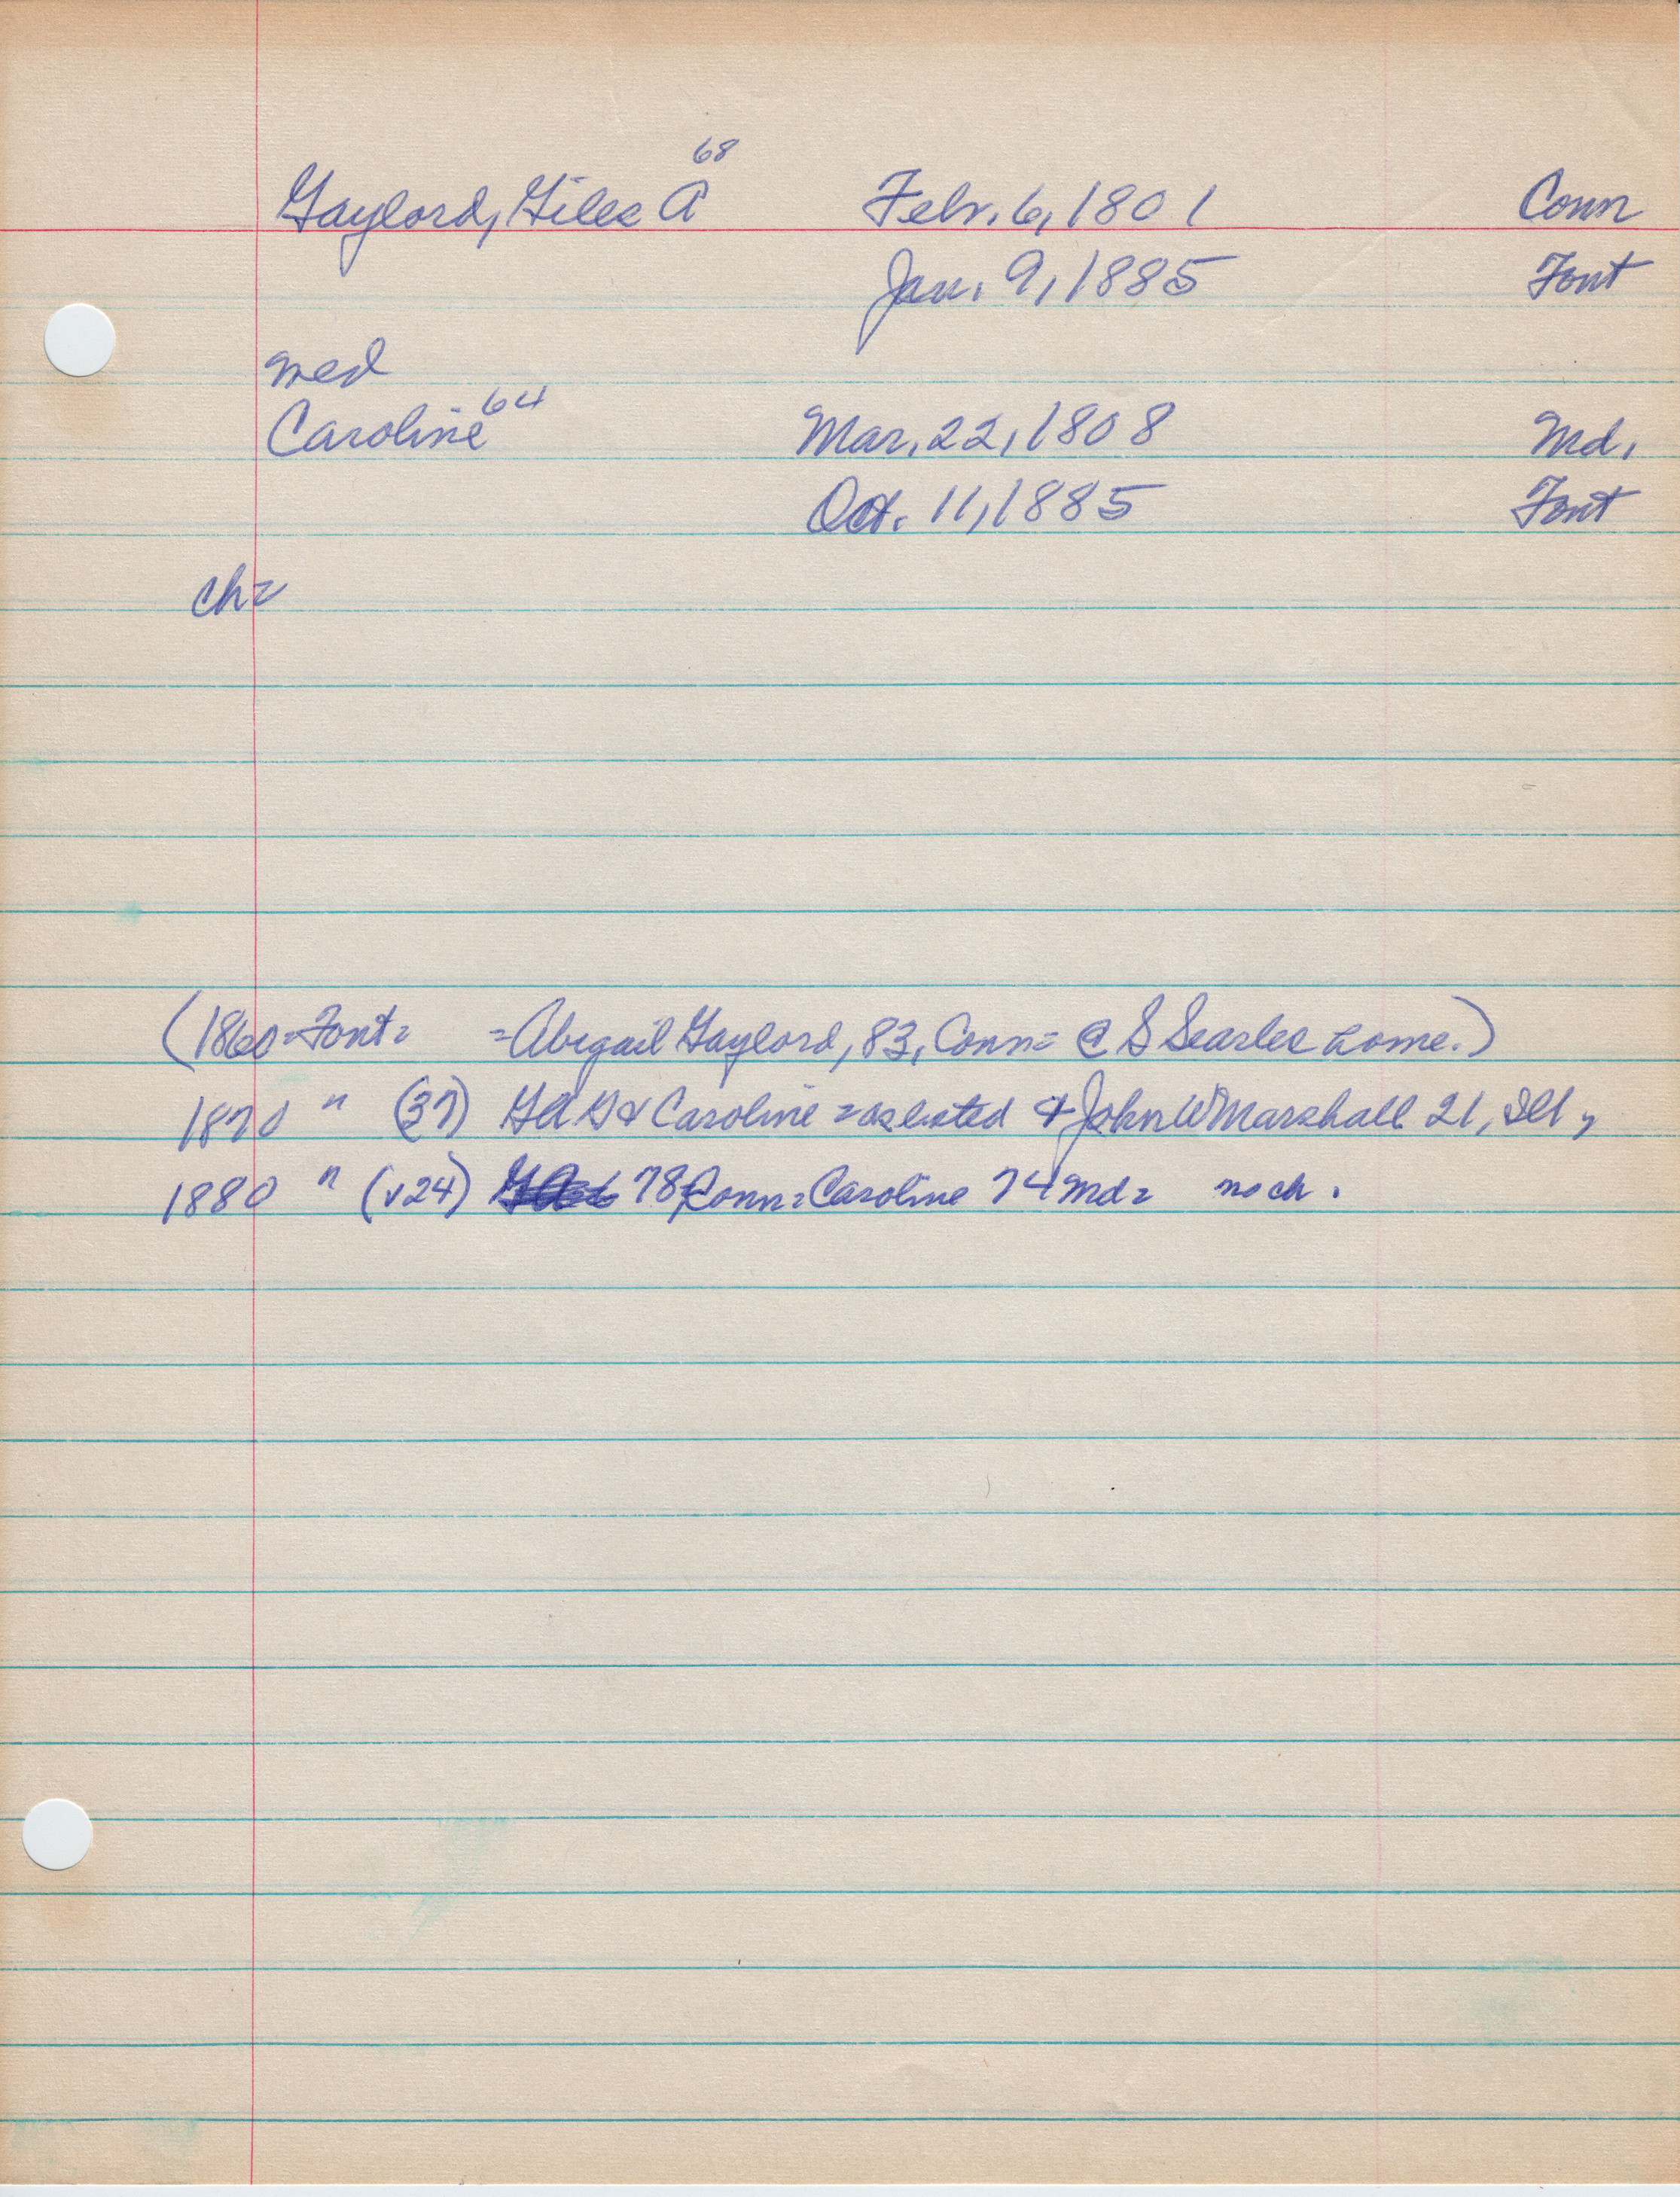 68
Gaylord, Giles A Febr. 6, 1801 Conn
Jan. 9, 1885 Font
med
Caroline 64 Mar. 22, 1808 Md.
Oct. 11, 1885 Font
ch=
(1860=Font= =Abigail Gaylord, 83, Conn= @ S Searles home.)
1870 " (37) GAG & Caroline =as listed & John W Marshall 21, Ill,
1880 " (v24) 78 Conn=Caroline 74 Md= no ch.